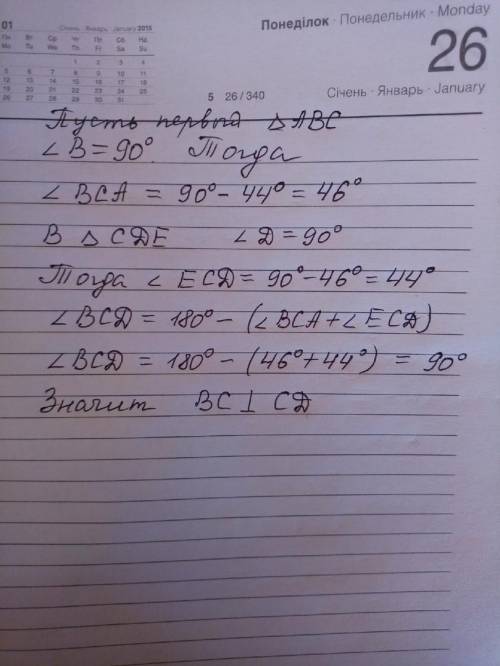 01 Січень Январь January 2015
Пн Вт Ср Чт Пт Сб Нд
Mo Tu We Th Fr Sa Su
1 2 3 4
5 6 7 8 9 10 11
12 13 14 15 16 17 18
19 20 21 22 23 24 25
26 27 28 29 30 31
Понеділок · Понедельник · Monday
26
5 26 / 340
Січень · Январь · January
Пусть первый △ABC
∠B = 90°. Тогда
∠BCA = 90° - 44° = 46°
В △CDE ∠D = 90°
Тогда ∠ECD = 90° - 46° = 44°
∠BCD = 180° - (∠BCA + ∠ECD)
∠BCD = 180° - (46° + 44°) = 90°
Значит BC ⊥ CD